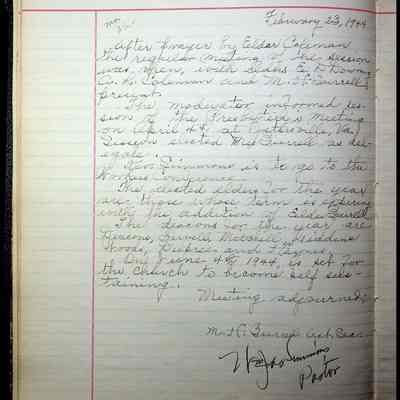 February 23, 1944
After prayer by Elder Coleman
the regular meeting of the session
was open, with elders E. D. Downing
C. H. Coleman and M. H. Burrell
present.
The moderator informed ses-
sion of the Presbytery's meeting
on April 4th at Petersville, Va.
Session elected Mrs Burrell as del-
egate.
Rev Simmons is to go to the
Workers Conference.
The elected elders for the year
are those whose term is expiring
with the addition of Elder Burrell
The deacons for the year are
Deacons,
Woods, and
On June 4th, 1944, is set for
the church to become self sus-
taining.
Meeting adjourned
M. H. Burrell
Simmons
Pastor